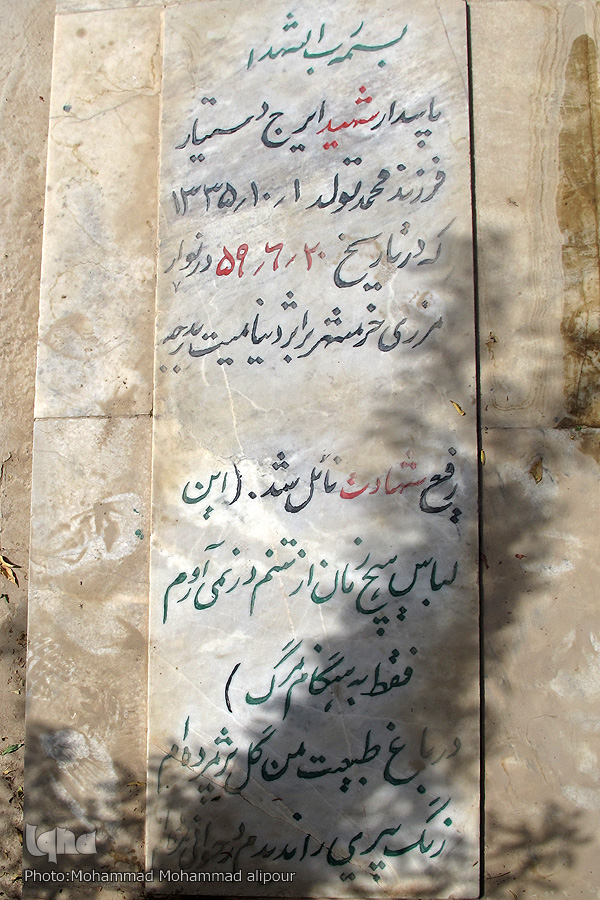 بسم رب الشهدا
پاسدار شهید ایرج دستیار
فرزند محمد تولد ۱٫۱۰٫۱۳۳۵
که در تاریخ ۲۰٫۶٫۵۹ در نوار
مرزی خرمشهر براثر دینامیت بدرجه
رفیع شهادت نائل شد. (این
لباس پیچ زمان از تنم در نمی آورم
فقط به هنگام مرگ)
در باغ طبیعت من گل پژمرده‌ام
رنگ پیری را ندیدم در جوانی
Iqna
Photo:Mohammad Mohammad alipour